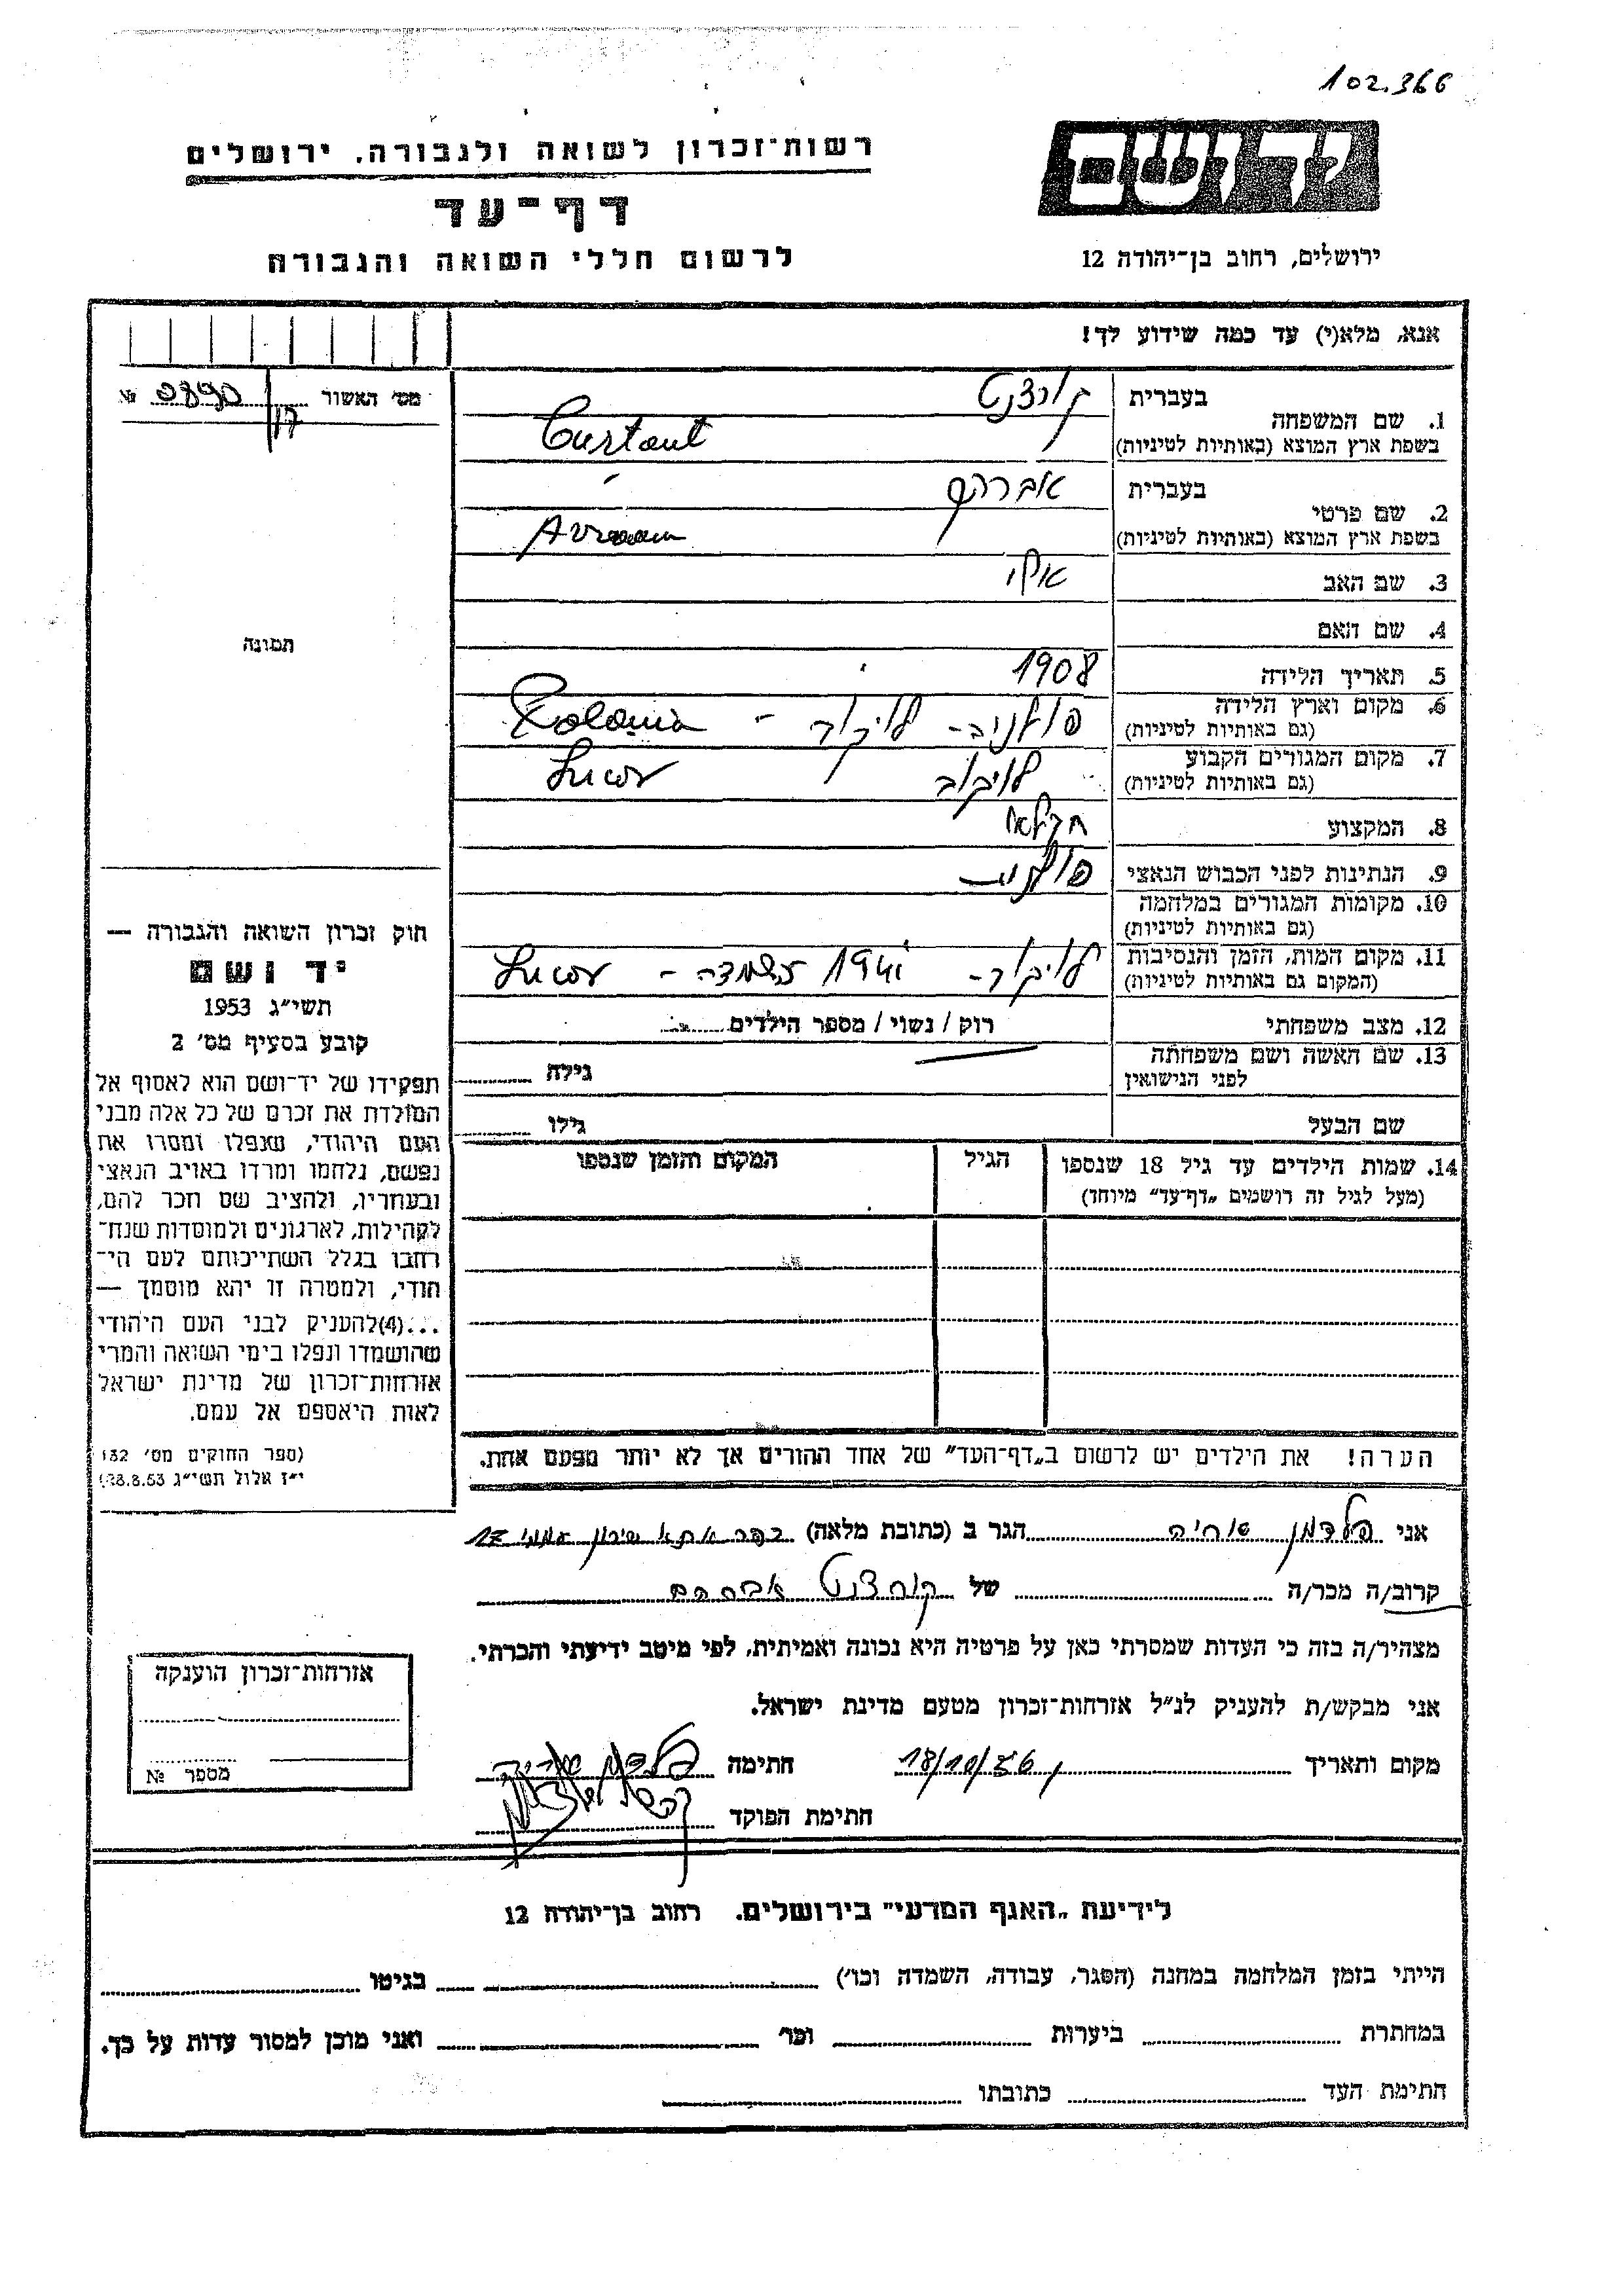 102.366
יד ושם
רשות־זכרון לשואה ולגבורה. ירושלים
דף־עד
לרשום חללי השואה והגבורה
ירושלים, רחוב בן־יהודה 12
אנא, מלא(י) עד כמה שידוע לך!
מס׳ האשור №
1. שם המשפחה
בעברית קורצנט
בשפת ארץ המוצא (באותיות לטיניות) Curtant
2. שם פרטי
בעברית אברהם
בשפת ארץ המוצא (באותיות לטיניות) Avraam
3. שם האב
4. שם האם
5. תאריך הלידה 1908
6. מקום וארץ הלידה
(גם באותיות לטיניות) פולניה - Polonia
7. מקום המגורים הקבוע
(גם באותיות לטיניות) Lucov
8. המקצוע חקלאי
9. הנתינות לפני הכבוש הנאצי פולנית
10. מקומות המגורים במלחמה
(גם באותיות לטיניות)
11. מקום המות, הזמן והנסיבות
(המקום גם באותיות לטיניות) 1941 השמדה - Lucov
12. מצב משפחתי רוק / נשוי / מספר הילדים
13. שם האשה ושם משפחתה
לפני הנישואין גילה
שם הבעל גילו
14. שמות הילדים עד גיל 18 שנספו
(מעל לגיל זה רושמים „דף־עד״ מיוחד)
הגיל
המקום והזמן שנספו
הערה! את הילדים יש לרשום ב„דף־העד״ של אחד ההורים אך לא יותר מפעם אחת.
תמונה
חוק זכרון השואה והגבורה —
יד ושם
תשי״ג 1953
קובע בסעיף מס׳ 2
תפקידו של יד־ושם הוא לאסוף אל
המולדת את זכרם של כל אלה מבני
העם היהודי, שנפלו ומסרו את
נפשם, נלחמו ומרדו באויב הנאצי
ובעוזריו, ולהציב שם וזכר להם,
לקהילות, לארגונים ולמוסדות שנח־
רבו בגלל השתייכותם לעם הי־
הודי, ולמטרה זו יהא מוסמך —
...(4)להעניק לבני העם היהודי
שהושמדו ונפלו בימי השואה והמרי
אזרחות־זכרון של מדינת ישראל
לאות היאספם אל עמם.
(ספר החוקים מס׳ 132
י״ז אלול תשי״ג 28.8.53)
אני פלדמן אריה הגר ב (כתובת מלאה)
קרוב/ה מכר/ה של קורצנט אברהם
מצהיר/ה בזה כי העדות שמסרתי כאן על פרטיה היא נכונה ואמיתית, לפי מיטב ידיעתי והכרתי.
אני מבקש/ת להעניק לנ״ל אזרחות־זכרון מטעם מדינת ישראל.
מקום ותאריך 18/10/56 חתימה פלדמן אריה
חתימת הפוקד
אזרחות־זכרון הוענקה
מספר №
לידיעת „האגף המדעי״ בירושלים. רחוב בן־יהודה 12
הייתי בזמן המלחמה במחנה (הסגר, עבודה, השמדה וכו׳) בגיטו
במחתרת ביערות וכו׳ ואני מוכן למסור עדות על כך.
חתימת העד כתובתו